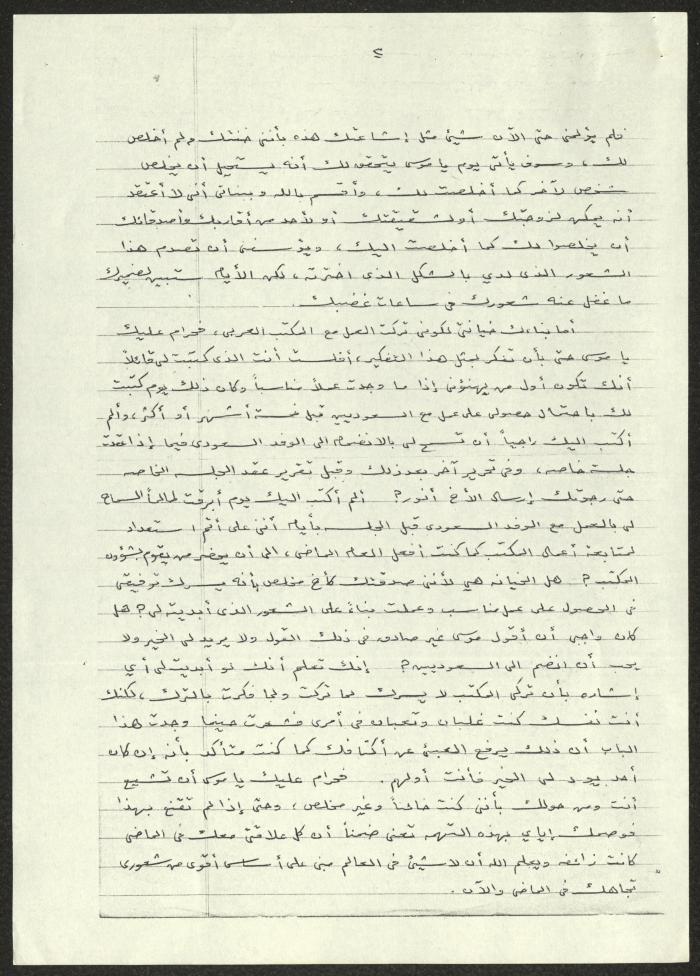 ٢
فلم يؤلمني حتى الآن شيئ مثل إشاعتك هذه بأنني خنتك ولم أخلص
لك ، وسوف يأتي يوم يا موسى يتحقق لك أنه يستحيل أن يخلص
شخص لآخر كما أخلصت لك ، وأقسم بالله وببناتي أني لا أعتقد
أنه يمكن لزوجتك أو لشقيقتك أو لأحد من أقاربك وأصدقائك
أن يخلصوا لك كما أخلصت اليك ، ويؤسفني أن تصدم هذا
الشعور الذي لدي بالشكل الذي اخترته ، لكن الأيام ستبين لضميرك
ما غفل عنه شعورك في ساعات غضبك .
أما بناءك خيانتي لكوني تركت العمل مع المكتب العربي ، فحرام عليك
يا موسى حتى بأن تفكر بمثل هذا التفكير ، أفلست أنت الذي كتبت لي قائلاً
أنك تكون أول من يهنؤني إذا ما وجدت عملاً مناسباً وكان ذلك يوم كتبت
لك باحتمال حصولي على عمل مع السعوديين قبل خمسة أشهر أو أكثر ، وألم
أكتب اليك راجياً أن تسمح لي بالانضمام الى الوفد السعودي فيما إذا عقدت
جلسة خاصه ، وفي تحرير آخر بعد ذلك وقبل تقرير عقد الجلسه الخاصه
حتى رجوتك إرسال الأخ أنور ؟ ألم أكتب اليك يوم أبرقت لك طالباً السماح
لي بالعمل مع الوفد السعودي قبل الجلسه بأيام أنني على أتم استعداد
لمتابعة أعمال المكتب كما كنت أفعل العام الماضي ، الى أن يحضر من يقوم بشؤون
المكتب ؟ هل الخيانه هي لأنني صدقتك كأخ مخلص بأنه يسرك توفيقي
في الحصول على عمل مناسب وعملت بناءً على الشعور الذي أبديته لي ؟ هل
كان واجبي أن أقول موسى غير صادق في ذلك القول ولا يريد لي الخير ولا
يحب أن أنضم الى السعوديين ؟ إنك تعلم أنك لو أبديت لي أي
إشاره بأن تركي المكتب لا يسرك لما تركت ولما فكرت بالترك ، لكنك
أنت نفسك كنت غلبان وتعبان في أمري فشعرت حينما وجدت هذا
الباب أن ذلك يرفع العبئ عن أكتافك كما كنت متأكد بأنه إن كان
أحد يود لي الخير فأنت أولهم . فحرام عليك يا موسى أن تشيع
أنت ومن حولك بأنني كنت خائناً وغير مخلص ، وحتى إذا لم تقنع بهذا
فوصمك إياي بهذه التهمه تعني ضمناً أن كل علاقتي معك في الماضي
كانت زائفه ويعلم الله أن لا شيئ في العالم مبني على أساس أقوى من شعوري
تجاهك في الماضي والآن .